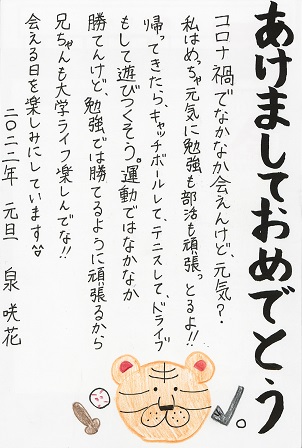 あけましておめでとう
コロナ禍でなかなか会えんけど、元気？
私はめっちゃ元気に勉強も部活も頑張っとるよ!!
帰ってきたら、キャッチボールして、テニスして、ドライブ
もして遊びつくそう。運動ではなかなか
勝てんけど、勉強では勝てるように頑張るから
兄ちゃんも大学ライフ楽しんでな!!
会える日を楽しみにしています
二〇二二年 元旦 泉 咲花